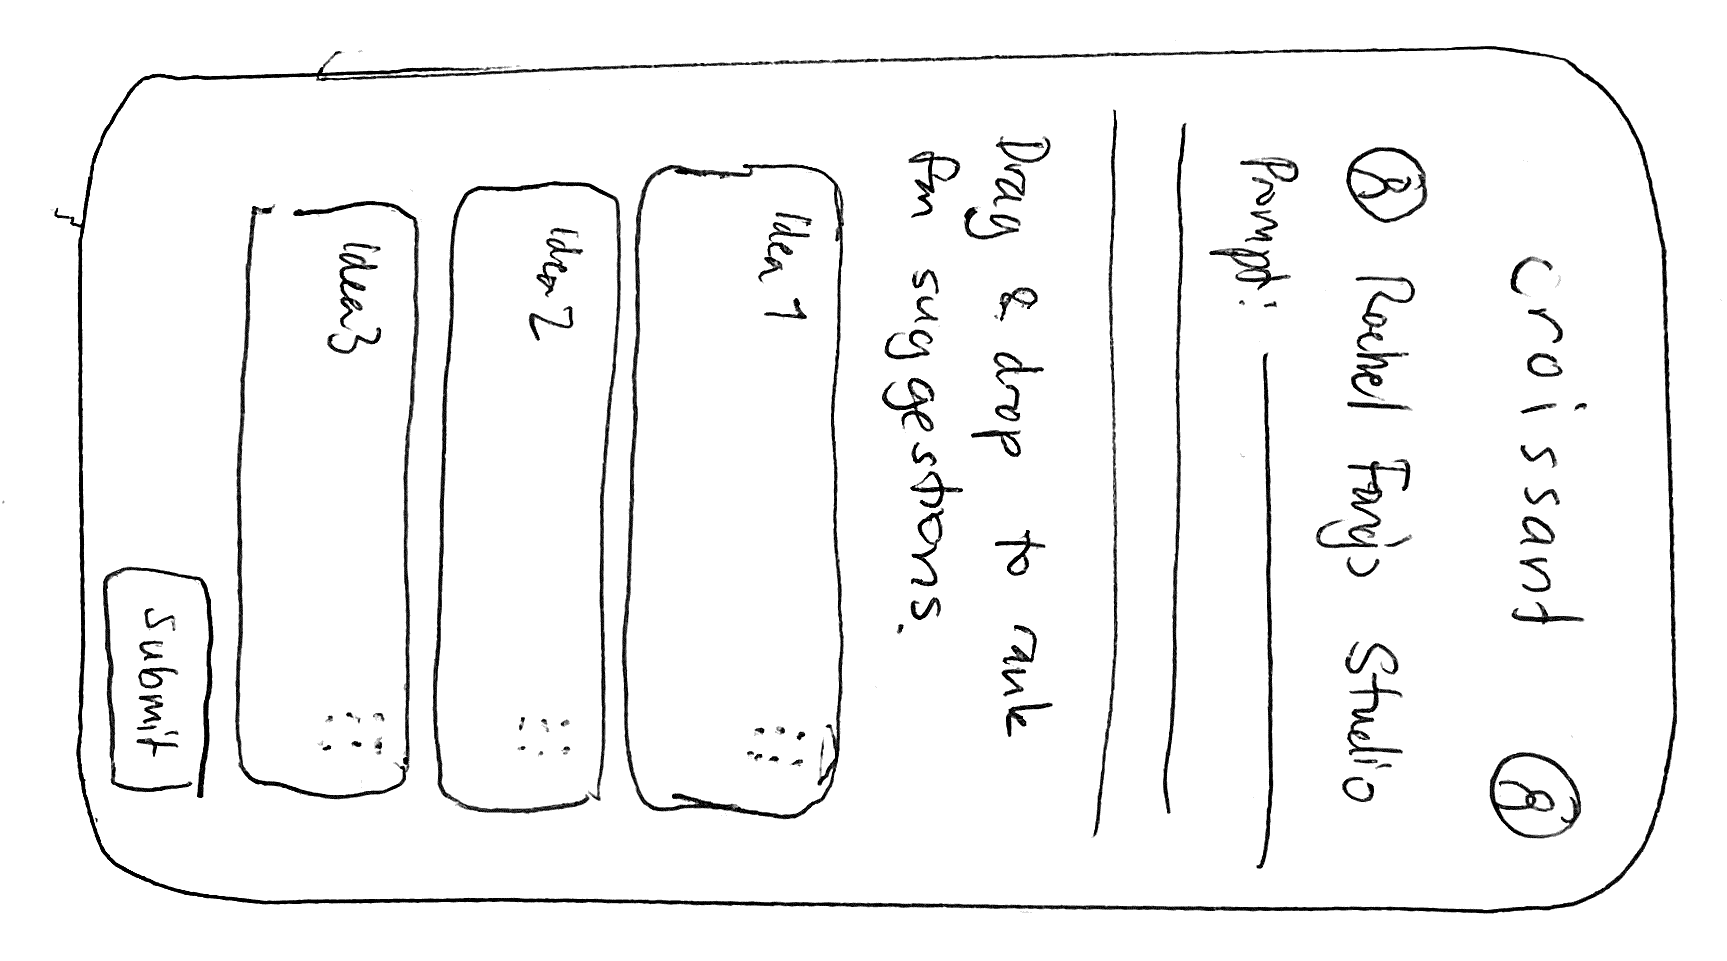 croissant
Rachel Fanjo Studio
Prompt:
Drag & drop to rank
fun suggestions.
Idea 1
Idea 2
Idea 3
Submit